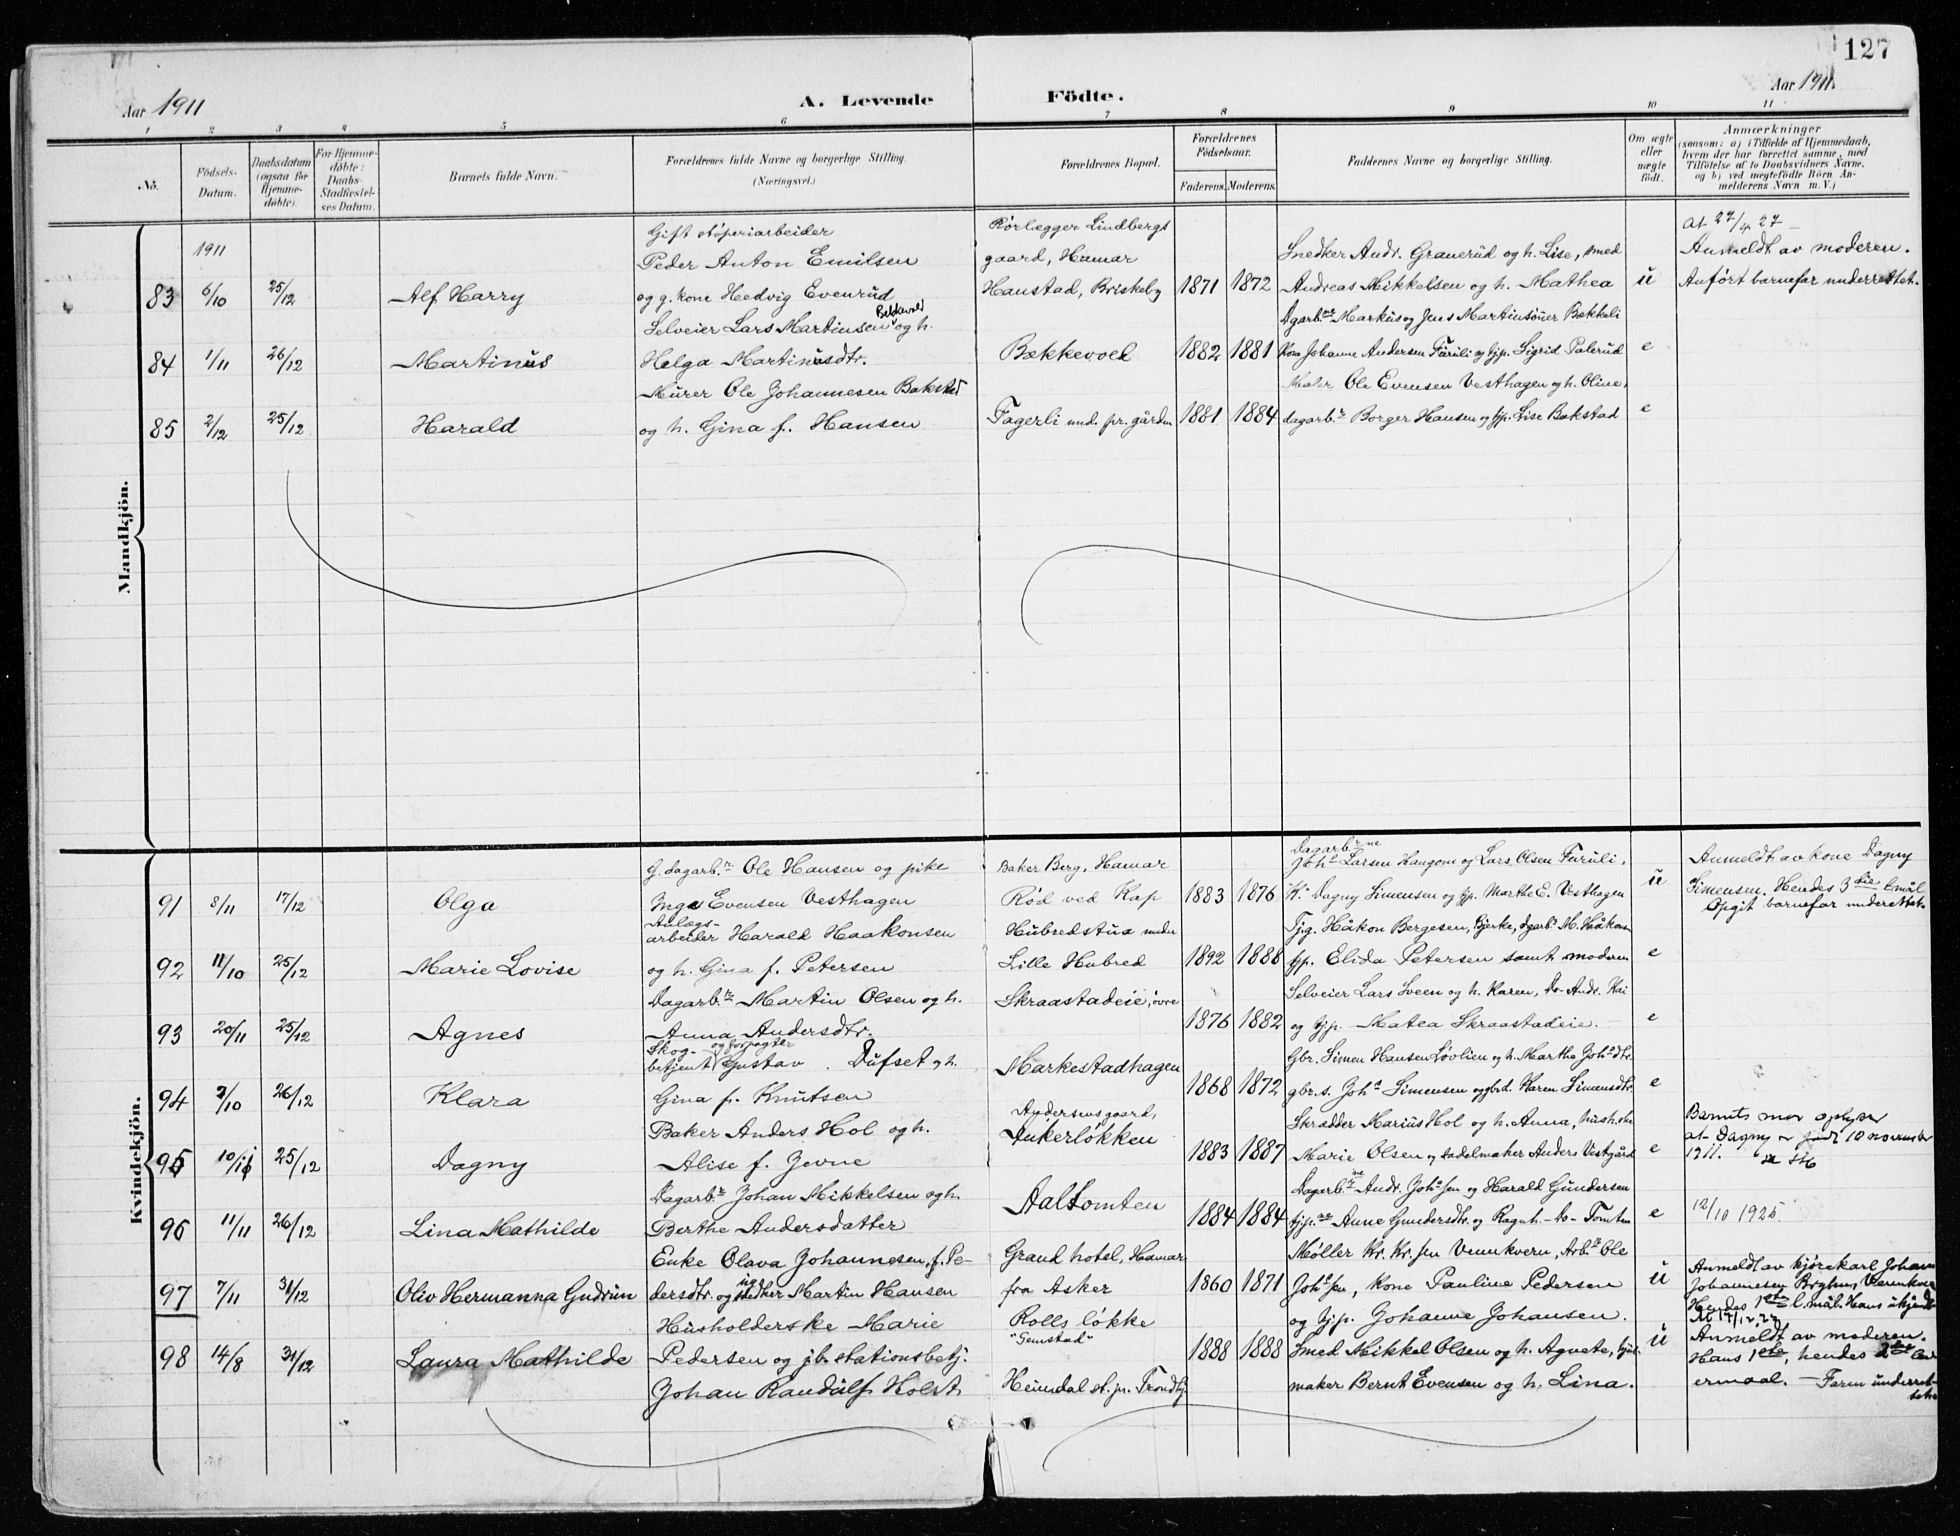 127
Aar 1911
A. Levende Födte.
Aar 1911
1 2 3 4 5 6 7 8 9 10 11
No.
Födsels-Datum.
Daabsdatum (ogsaa for Hjemme-döbte).
For Hjemme-döbte: Daabs-Stadfæstel-ses Datum.
Barnets fulde Navn.
Forældrenes fulde Navne og borgerlige Stilling. (Næringsvei.)
Forældrenes Bopæl.
Forældrenes Födselsaar.
Faderens. Moderens.
Faddernes Navne og borgerlige Stilling.
Om ægte eller uægte födt.
Anmærkninger
(saasom: a) i Tilfælde af Hjemmedaab,
hvem der har forrettet samme, med
Tilföielse af to Daabsvidners Navne,
og b) ved uægtefödte Börn An-
melderens Navn m. V.)
Mandkjön.
1911
83 6/10 25/12 Alf Harry
Gift støperiarbeider
Peder Anton Emilsen
og g. kone Hedvig Evenrud
Rørlægger Lindbergs
gaard, Hamar
Hanstad, Briskeby
1871 1872
Snedker Andr. Granerud og h. Lise, smed
Andreas Mikkelsen og h. Mathea
u
At 27/4 27
Anmeldt av moderen.
Anført barnefar underrettet.
84 1/11 26/12 Martinus
Selveier Lars Martinsen Bekkevold og h.
Helga Martinusdtr.
Bækkevold
1882 1881
Dagarb.ne Markus og Jens Martinsøner Bækkeli
Kone Johanne Andersen Furuli og pp. Sigrid Palerud
e
85 2/12 25/12 Harald
Murer Ole Johannesen Bakstad
og h. Gina f. Hansen
Fagerli und. pr. gården
1881 1884
Maler Ole Evensen Vesthagen og h. Oline,
dagarb.r Borger Hansen og pp. Lise Bakstad
e
Kvindekjön.
91 8/11 17/12 Olga
G. dagarb.r Ole Hansen og pike
Inga Evensen Vesthagen
Baker Berg, Hamar
Rød ved Kap
1883 1876
Dagarb.rne
Joh.s Larsen Haugom og Lars Olsen Furuli,
K. Dagny Simensen og pp. Marthe E. Vesthagen
u
Anmeldt av kone Dagny
Simensen. Hendes 3die l.mål
Opgit barnefar underrettet.
92 11/10 25/12 Marie Lovise
Anlægs-
arbeider Harald Haakonsen
og h. Gina f. Petersen
Hubredstua under
Lille Hubred
1892 1888
Tjg. Håkon Bergesen, Bjerke, dgarb. M. Håkons.
pp. Elida Petersen samt moderen
e
93 20/11 25/12 Agnes
Dagarb.r Martin Olsen og h.
Anna Andersdtr.
Skraastadeie, øvre
1876 1882
Selveier Lars Sveen og h. Karen, Do Andr.
og pp. Matea Skraastadeie.
e
94 2/10 26/12 Klara
Skog- og forpagter
betjent Gustav Dufset og h.
Gina f. Knutsen
Markestadhagen
1868 1872
Gbr. Simen Hansen Løvlien og h. Marthe Joh.sdtr.
gbr.s. Joh.s Simensen og gbrd. Karen Simensdtr.
e
95 10/11 25/12 Dagny
Baker Anders Hol og h.
Alise f. Jevne
Andersensgaard,
Ankerløkken
1883 1887
Skrædder Marius Hol og h. Anna,
Marie Olsen og sadelmaker Anders Vestgård
e
Barnets mor oplyser
at Dagny er født 10 november
1911.
96 11/11 26/12 Lina Mathilde
Dagarb.r Johan Mikkelsen og h.
Berthe Andersdatter
Aaltomten
1884 1884
Dagarb.ne Andr. Joh.sen og Harald Gundersen
pp.ne Anne Gundersdtr. og Ragnh. do Tomten
e
12/10 1925.
97 7/11 31/12 Oliv Hermanna Gudrun
Enke Olava Johannesen, f. Pe-
dersdtr. og snedker Martin Hansen
Grand hotel, Hamar
fra Asker
1860 1871
Møller Kr. Kr.sen Vennkvern, Arb.r Ole
Joh.sen, kone Pauline Pedersen
og pp. Johanne Johansen.
u
Anmeldt av kjørekarl Johan
Johannesen
Hendes 1ste l.mål. Hans ukjendt
98 14/8 31/12 Laura Mathilde
Husholderske Marie
Pedersen og jb. stationsbetj.
Johan Randulf Holst
Rolls løkke
"Senstad"
Heimdal st. p. Trondhj.
1888 1888
Smed Mikkel Olsen og h. Agnete,
maker Bernt Evensen og h. Lina.
u
Anmeldt av moderen.
Hans 1ste, hendes 2det lei-
ermaal. — Faren underret-
tet